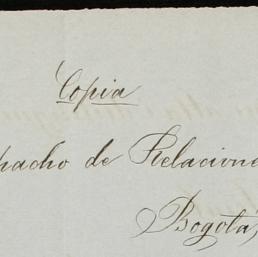 Copia
pacho de Relacione
Bogotá,